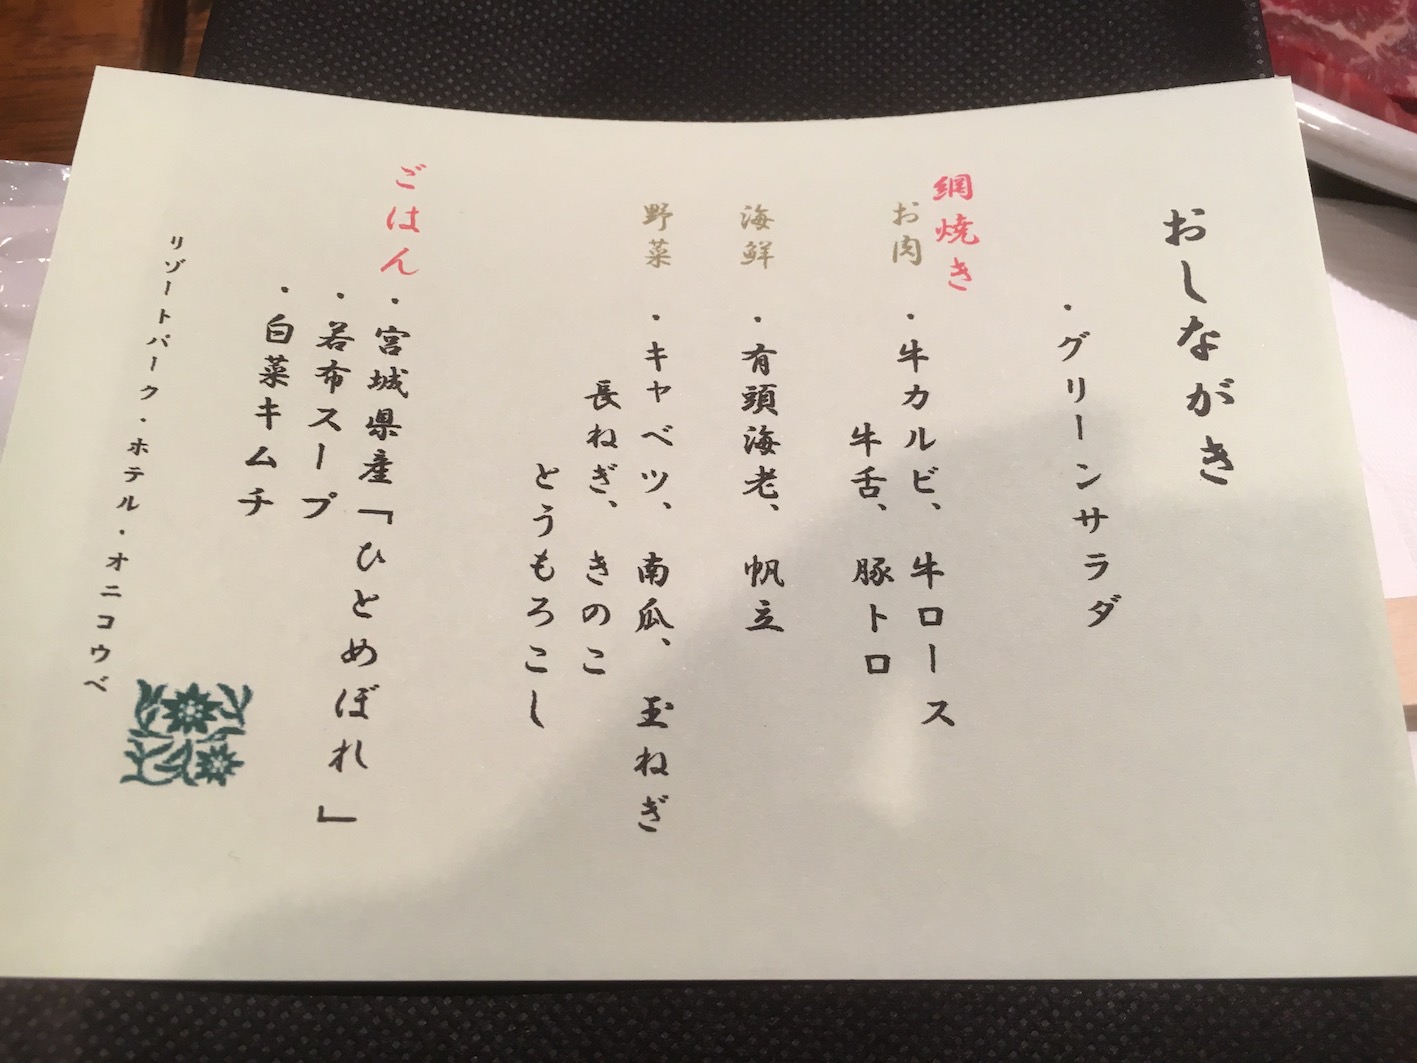 おしながき
・グリーンサラダ
網焼き
お肉 ・牛カルビ、牛ロース
牛舌、豚トロ
海鮮 ・有頭海老、帆立
野菜 ・キャベツ、南瓜、玉ねぎ
長ねぎ、きのこ
とうもろこし
ごはん ・宮城県産「ひとめぼれ」
・若布スープ
・白菜キムチ
リゾートパーク・ホテル・オニコウベ